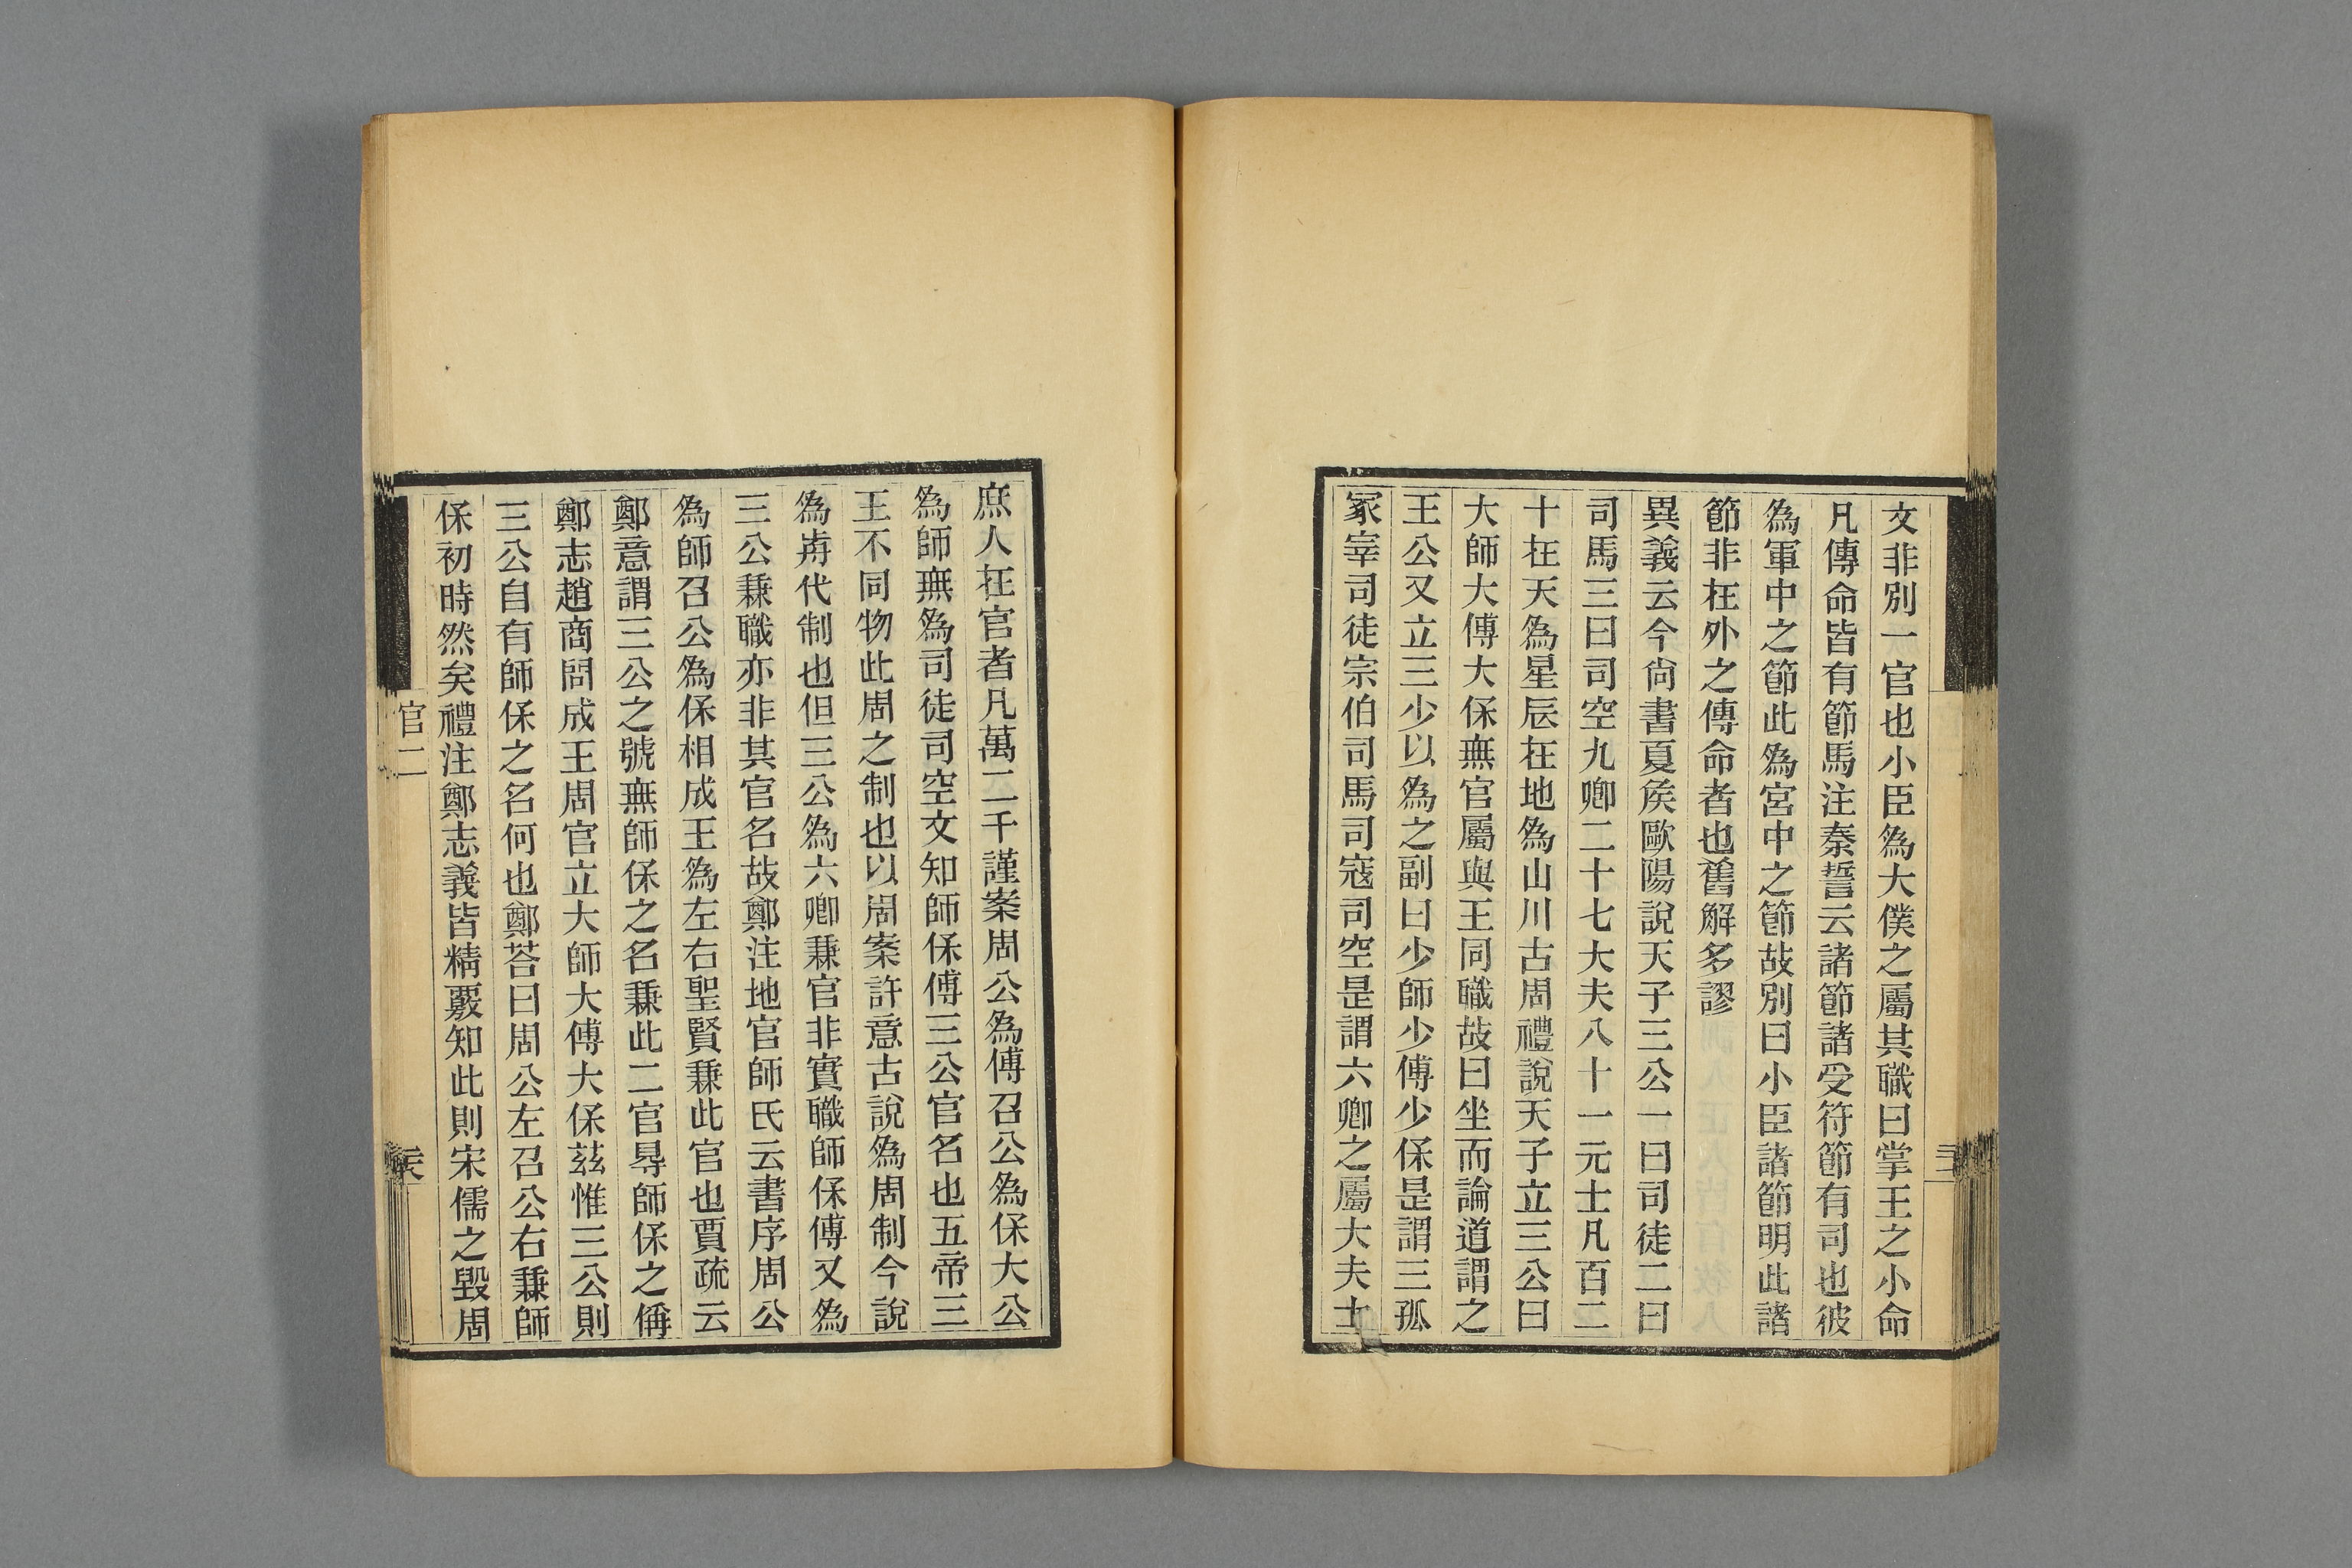 文非別一官也小臣為大僕之屬其職曰掌王之小命
凡傳命皆有節馬注秦誓云諸節諸受符節有司也彼
為軍中之節此為宮中之節故別曰小臣諸節明此諸
節非在外之傳命者也舊解多謬
異義云今尚書夏矦歐陽說天子三公一曰司徒二曰
司馬三曰司空九卿二十七大夫八十一元士凡百二
十在天為星辰在地為山川古周禮說天子立三公曰
大師大傅大保無官屬與王同職故曰坐而論道謂之
王公又立三少以為之副曰少師少傅少保是謂三孤
冢宰司徒宗伯司馬司寇司空是謂六卿之屬大夫士
庶人在官者凡萬二千謹案周公為傅召公為保大公
為師無為司徒司空文知師保傅三公官名也五帝三
王不同物此周之制也以周案許意古說為周制今說
為歬代制也但三公為六卿兼官非實職師保傅又為
三公兼職亦非其官名故鄭注地官師氏云書序周公
為師召公為保相成王為左右聖賢兼此官也賈疏云
鄭意謂三公之號無師保之名兼此二官㝵師保之偁
鄭志趙商問成王周官立大師大傅大保茲惟三公則
三公自有師保之名何也鄭荅曰周公左召公右兼師
保初時然矣禮注鄭志義皆精覈知此則宋儒之毀周
官二